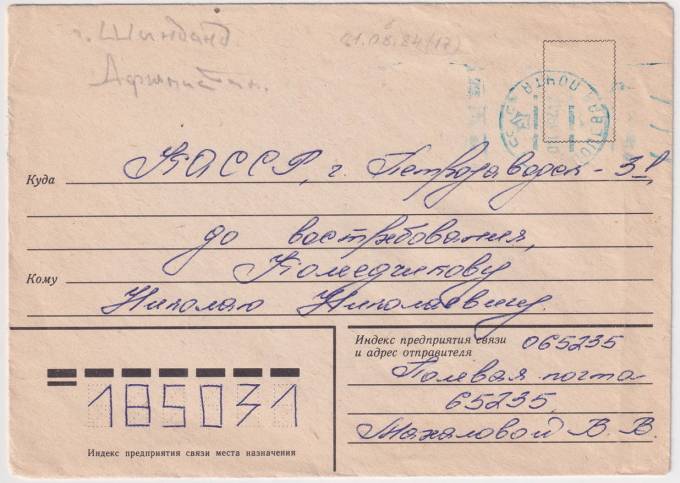 г. Шинданд
Афганистан.
Куда КАССР, г. Петрозаводск - 31
до востребования,
Кому Комедчикову
Николаю Николаевичу.
Индекс предприятия связи
и адрес отправителя 065235
Полевая почта
65235,
Махаловой В. В.
185031
Индекс предприятия связи места назначения